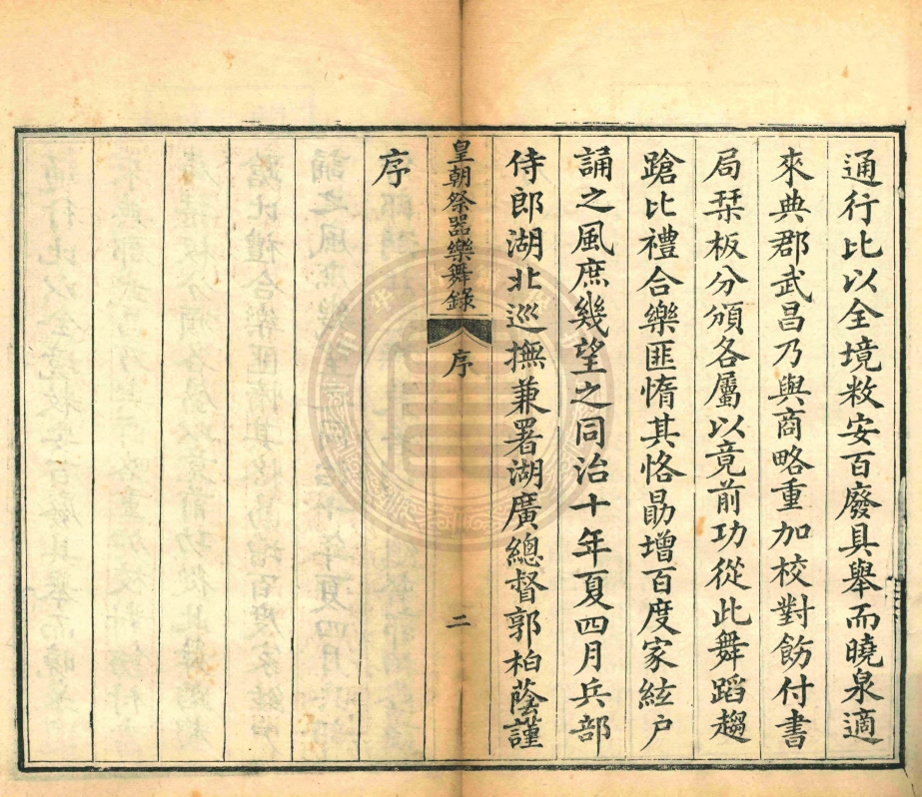 通行比以全境敉安百廢具舉而曉泉適
來典郡武昌乃與商略重加校對飭付書
局栞板分頒各屬以竟前功從此舞蹈趨
蹌比禮合樂匪惰其恪勗增百度家絃户
誦之風庶幾望之同治十年夏四月兵部
侍郎湖北巡撫兼署湖廣總督郭柏蔭謹
皇朝祭器樂舞錄
序
二
序